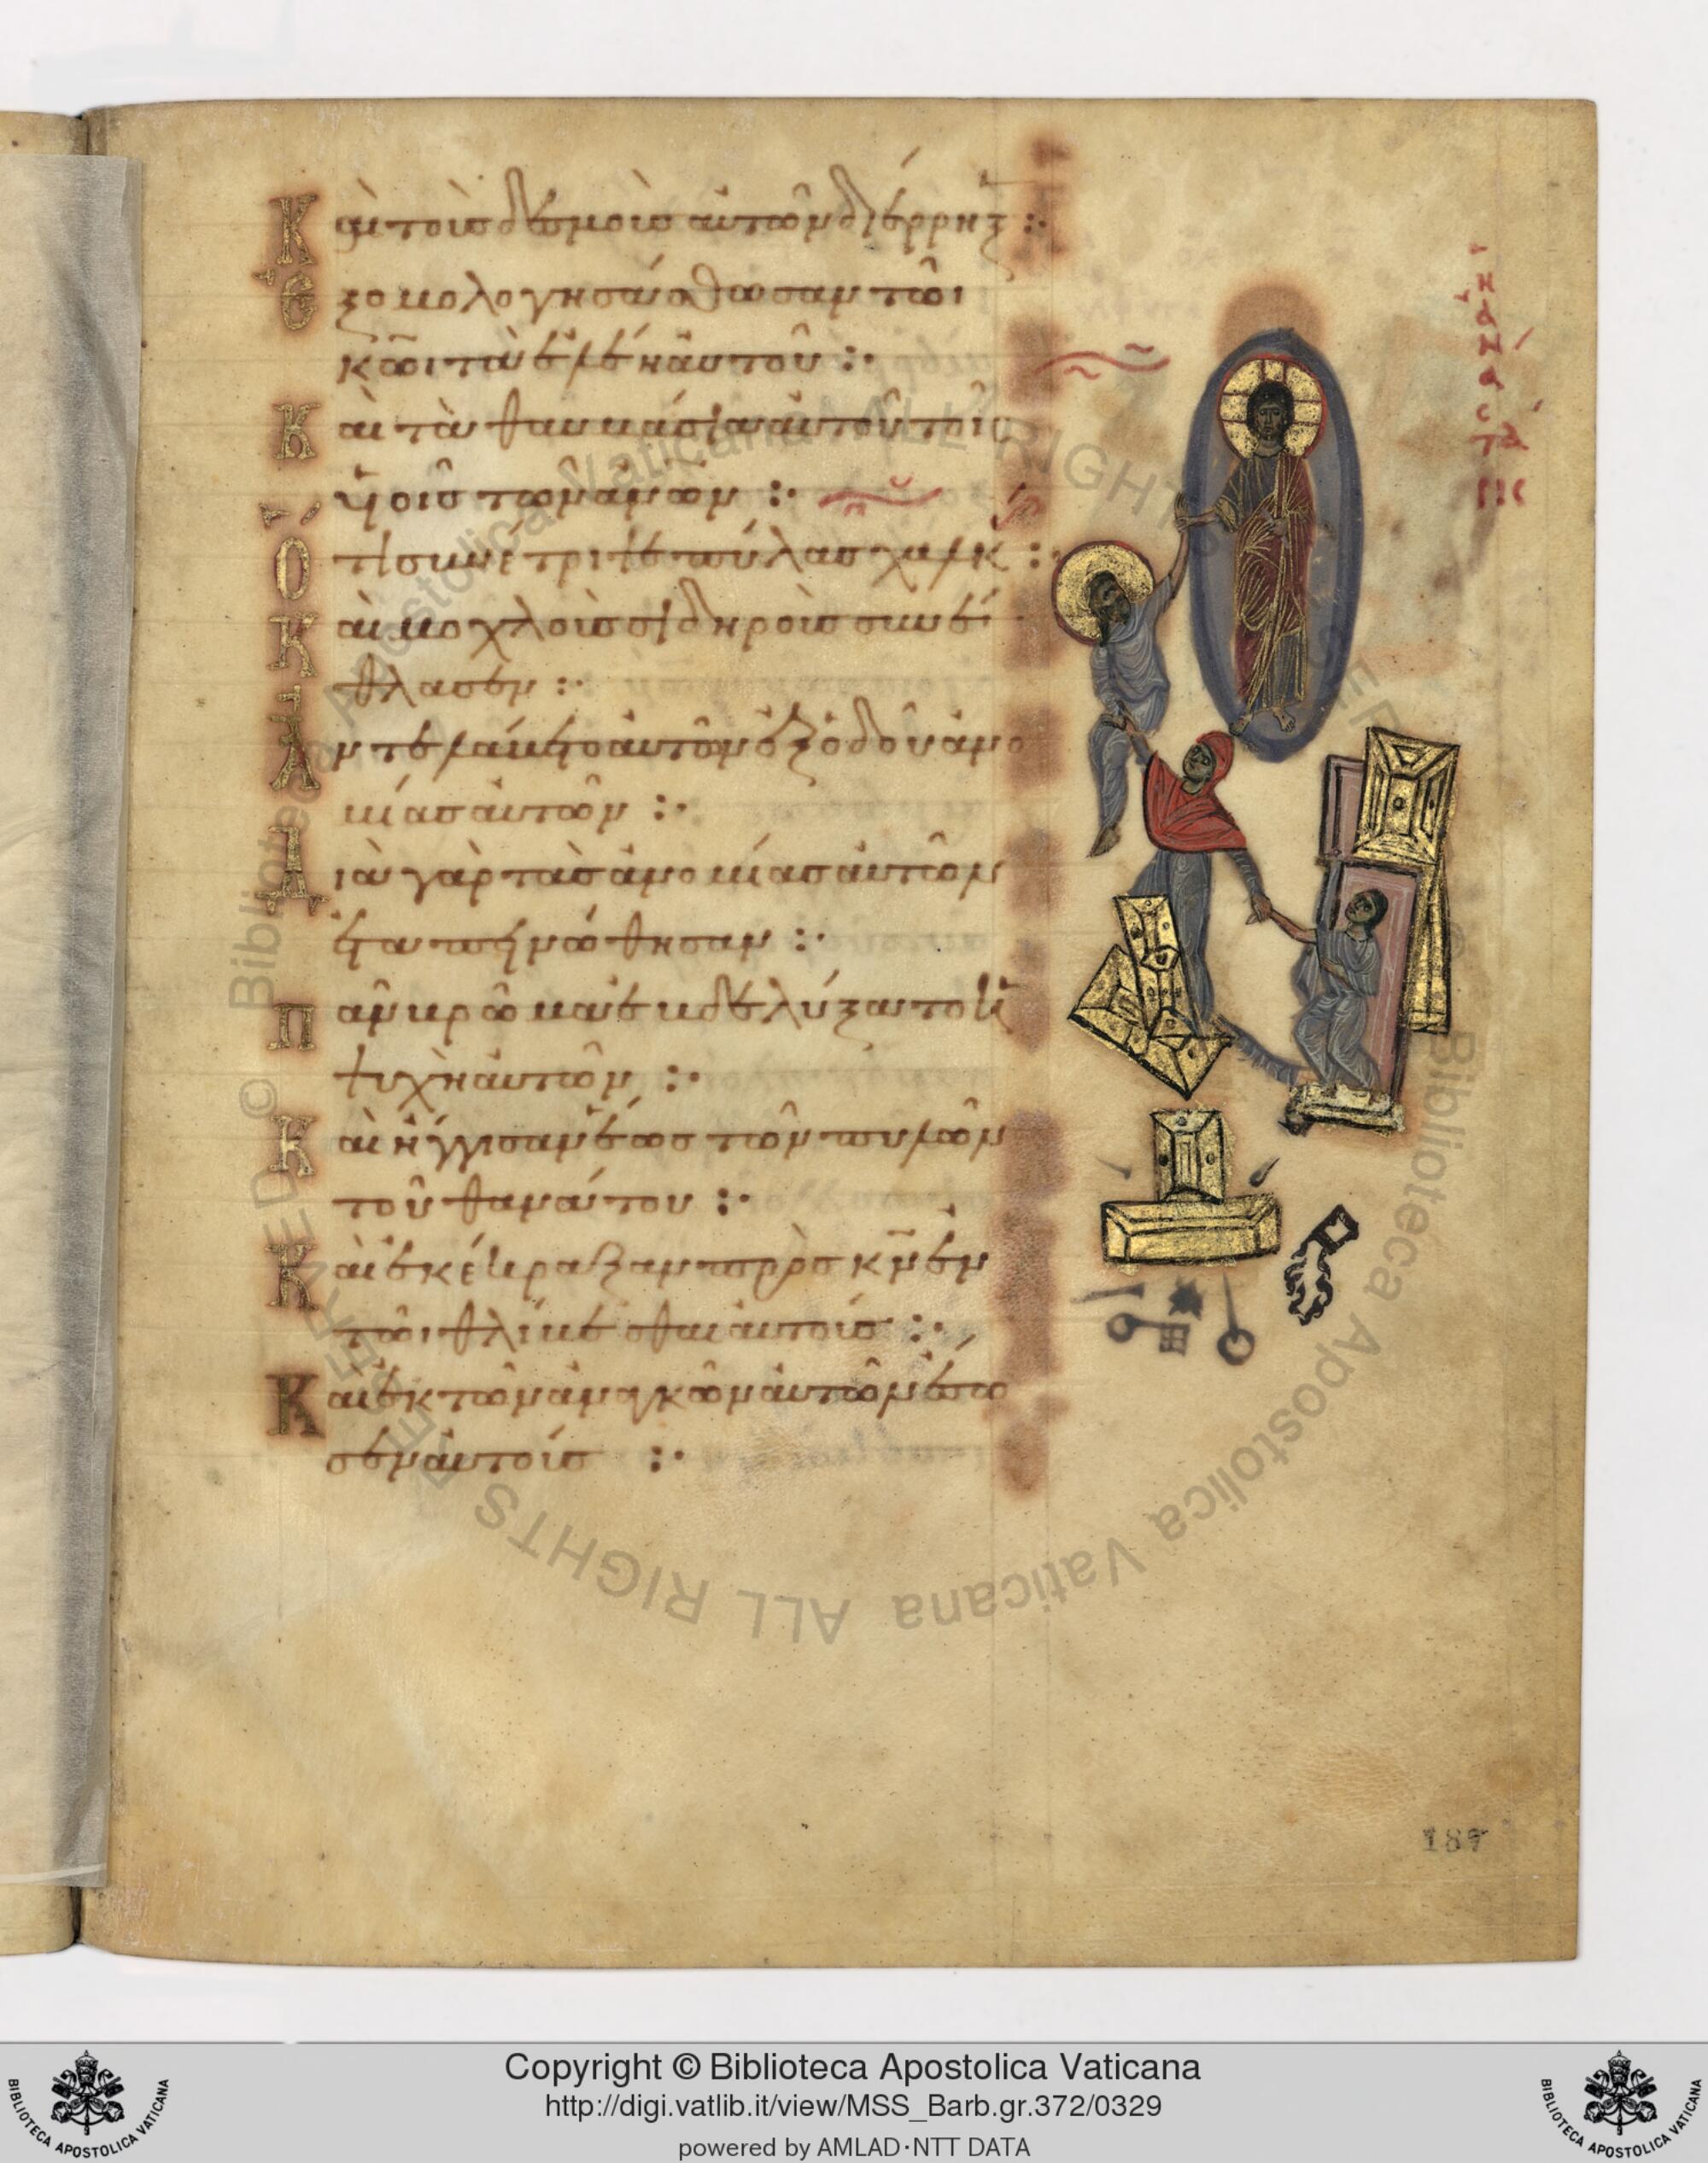 Καὶ τοὺς δεσμοὺς αὐτῶν διέρρηξ :·
Ἐξομολογησάσθωσαν τῶι
κῶι τὰ ἐλέη αὐτοῦ :·
Καὶ τὰ θαυμάσια αὐτοῦ τοῖς
υἱοῖς τῶν ἀνῶν :·
Ὅτι συνέτριψε πύλας χαλκ :·
Καὶ μοχλοὺς σιδηροὺς συνέ
θλασεν :·
Ἀντελάβετο αὐτῶν ἐξ ὁδοῦ ἀνο
μίας αὐτῶν :·
Διὰ γὰρ τὰς ἀνομίας αὐτῶν
ἐταπεινώθησαν :·
Πᾶν βρῶμα ἐβδελύξατο ἡ
ψυχὴ αὐτῶν :·
Καὶ ἤγγισαν ἕως τῶν πυλῶν
τοῦ θανάτου :·
Καὶ ἐκέκραξαν πρὸς κ̄ν ἐν
τῶι θλίβεσθαι αὐτούς :·
Καὶ ἐκ τῶν ἀναγκῶν αὐτῶν ἔσω
σεν αὐτούς :·
ἡ ἀνάστασις
189
Copyright © Biblioteca Apostolica Vaticana
http://digi.vatlib.it/view/MSS_Barb.gr.372/0329
powered by AMLAD·NTT DATA
BIBLIOTECA APOSTOLICA VATICANA
BIBLIOTECA APOSTOLICA VATICANA
© Biblioteca Apostolica Vaticana ALL RIGHTS RESERVED
© Biblioteca Apostolica Vaticana ALL RIGHTS RESERVED